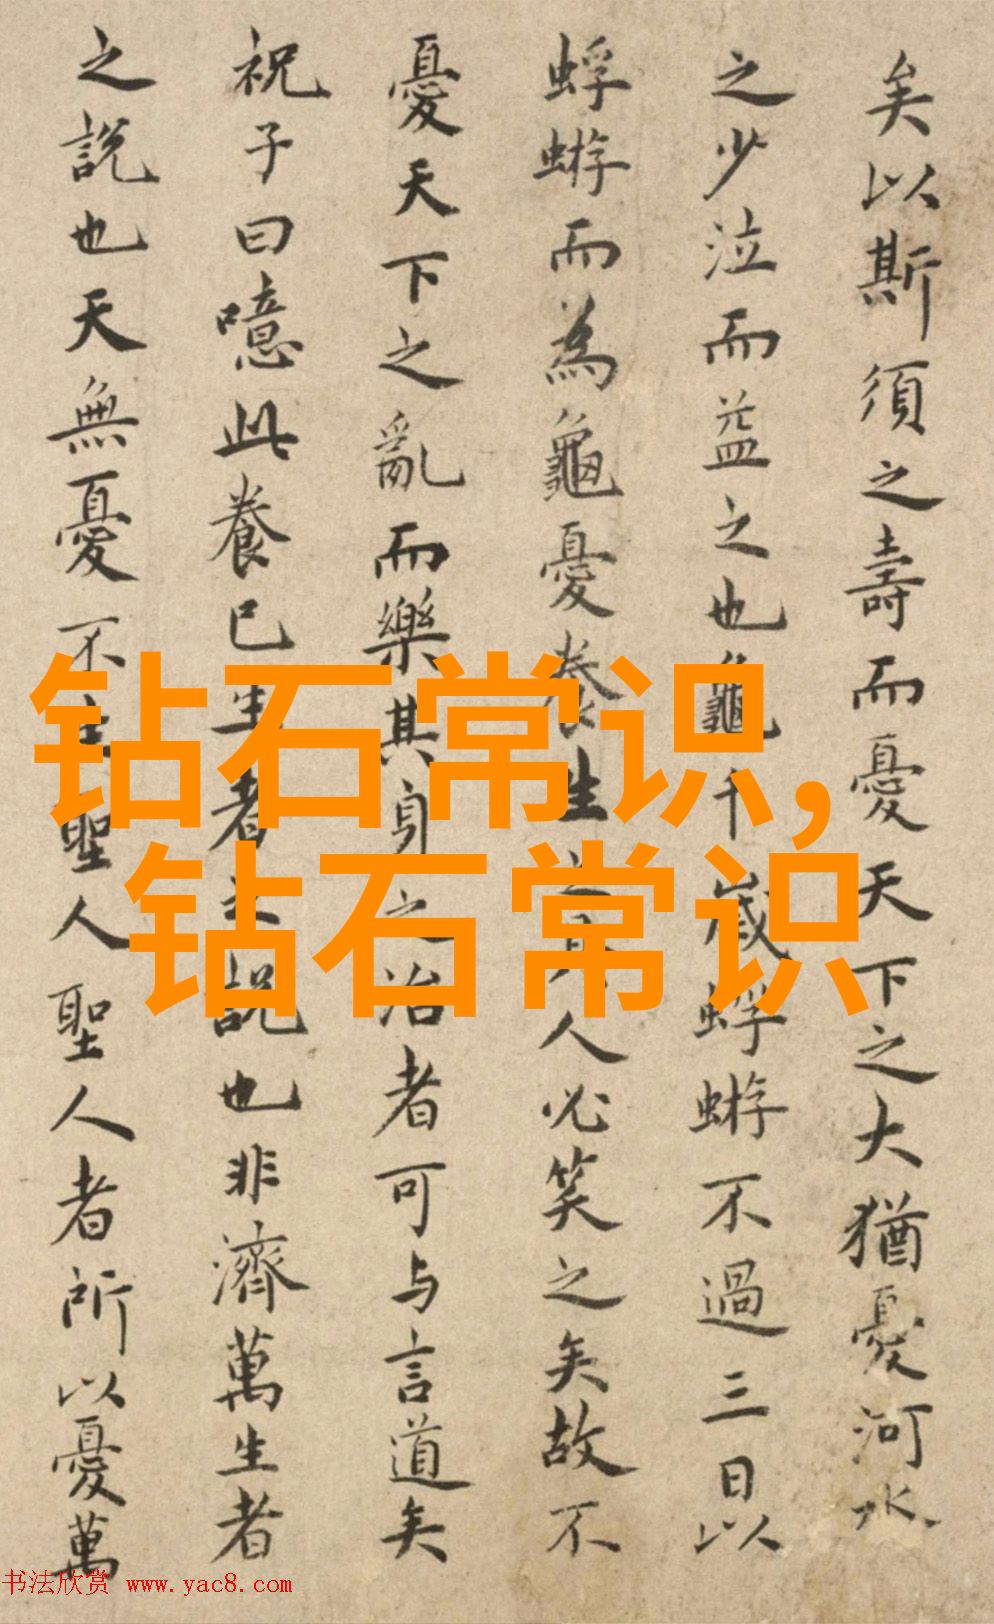 矣以斯須之壽而憂天下之大猶憂河水
之少泣而益之也龜千歲蜉蝣不過三日以
蜉蝣而為龜憂養生之具人必笑之矣故不
憂天下之亂而樂其身之治者可与言道矣
祝子曰噫此養己生者之說也非濟萬生者
之說也天無憂不生聖人聖人者所以憂萬
钻石常识,
钻石常识
书法欣赏 www.yac8.com